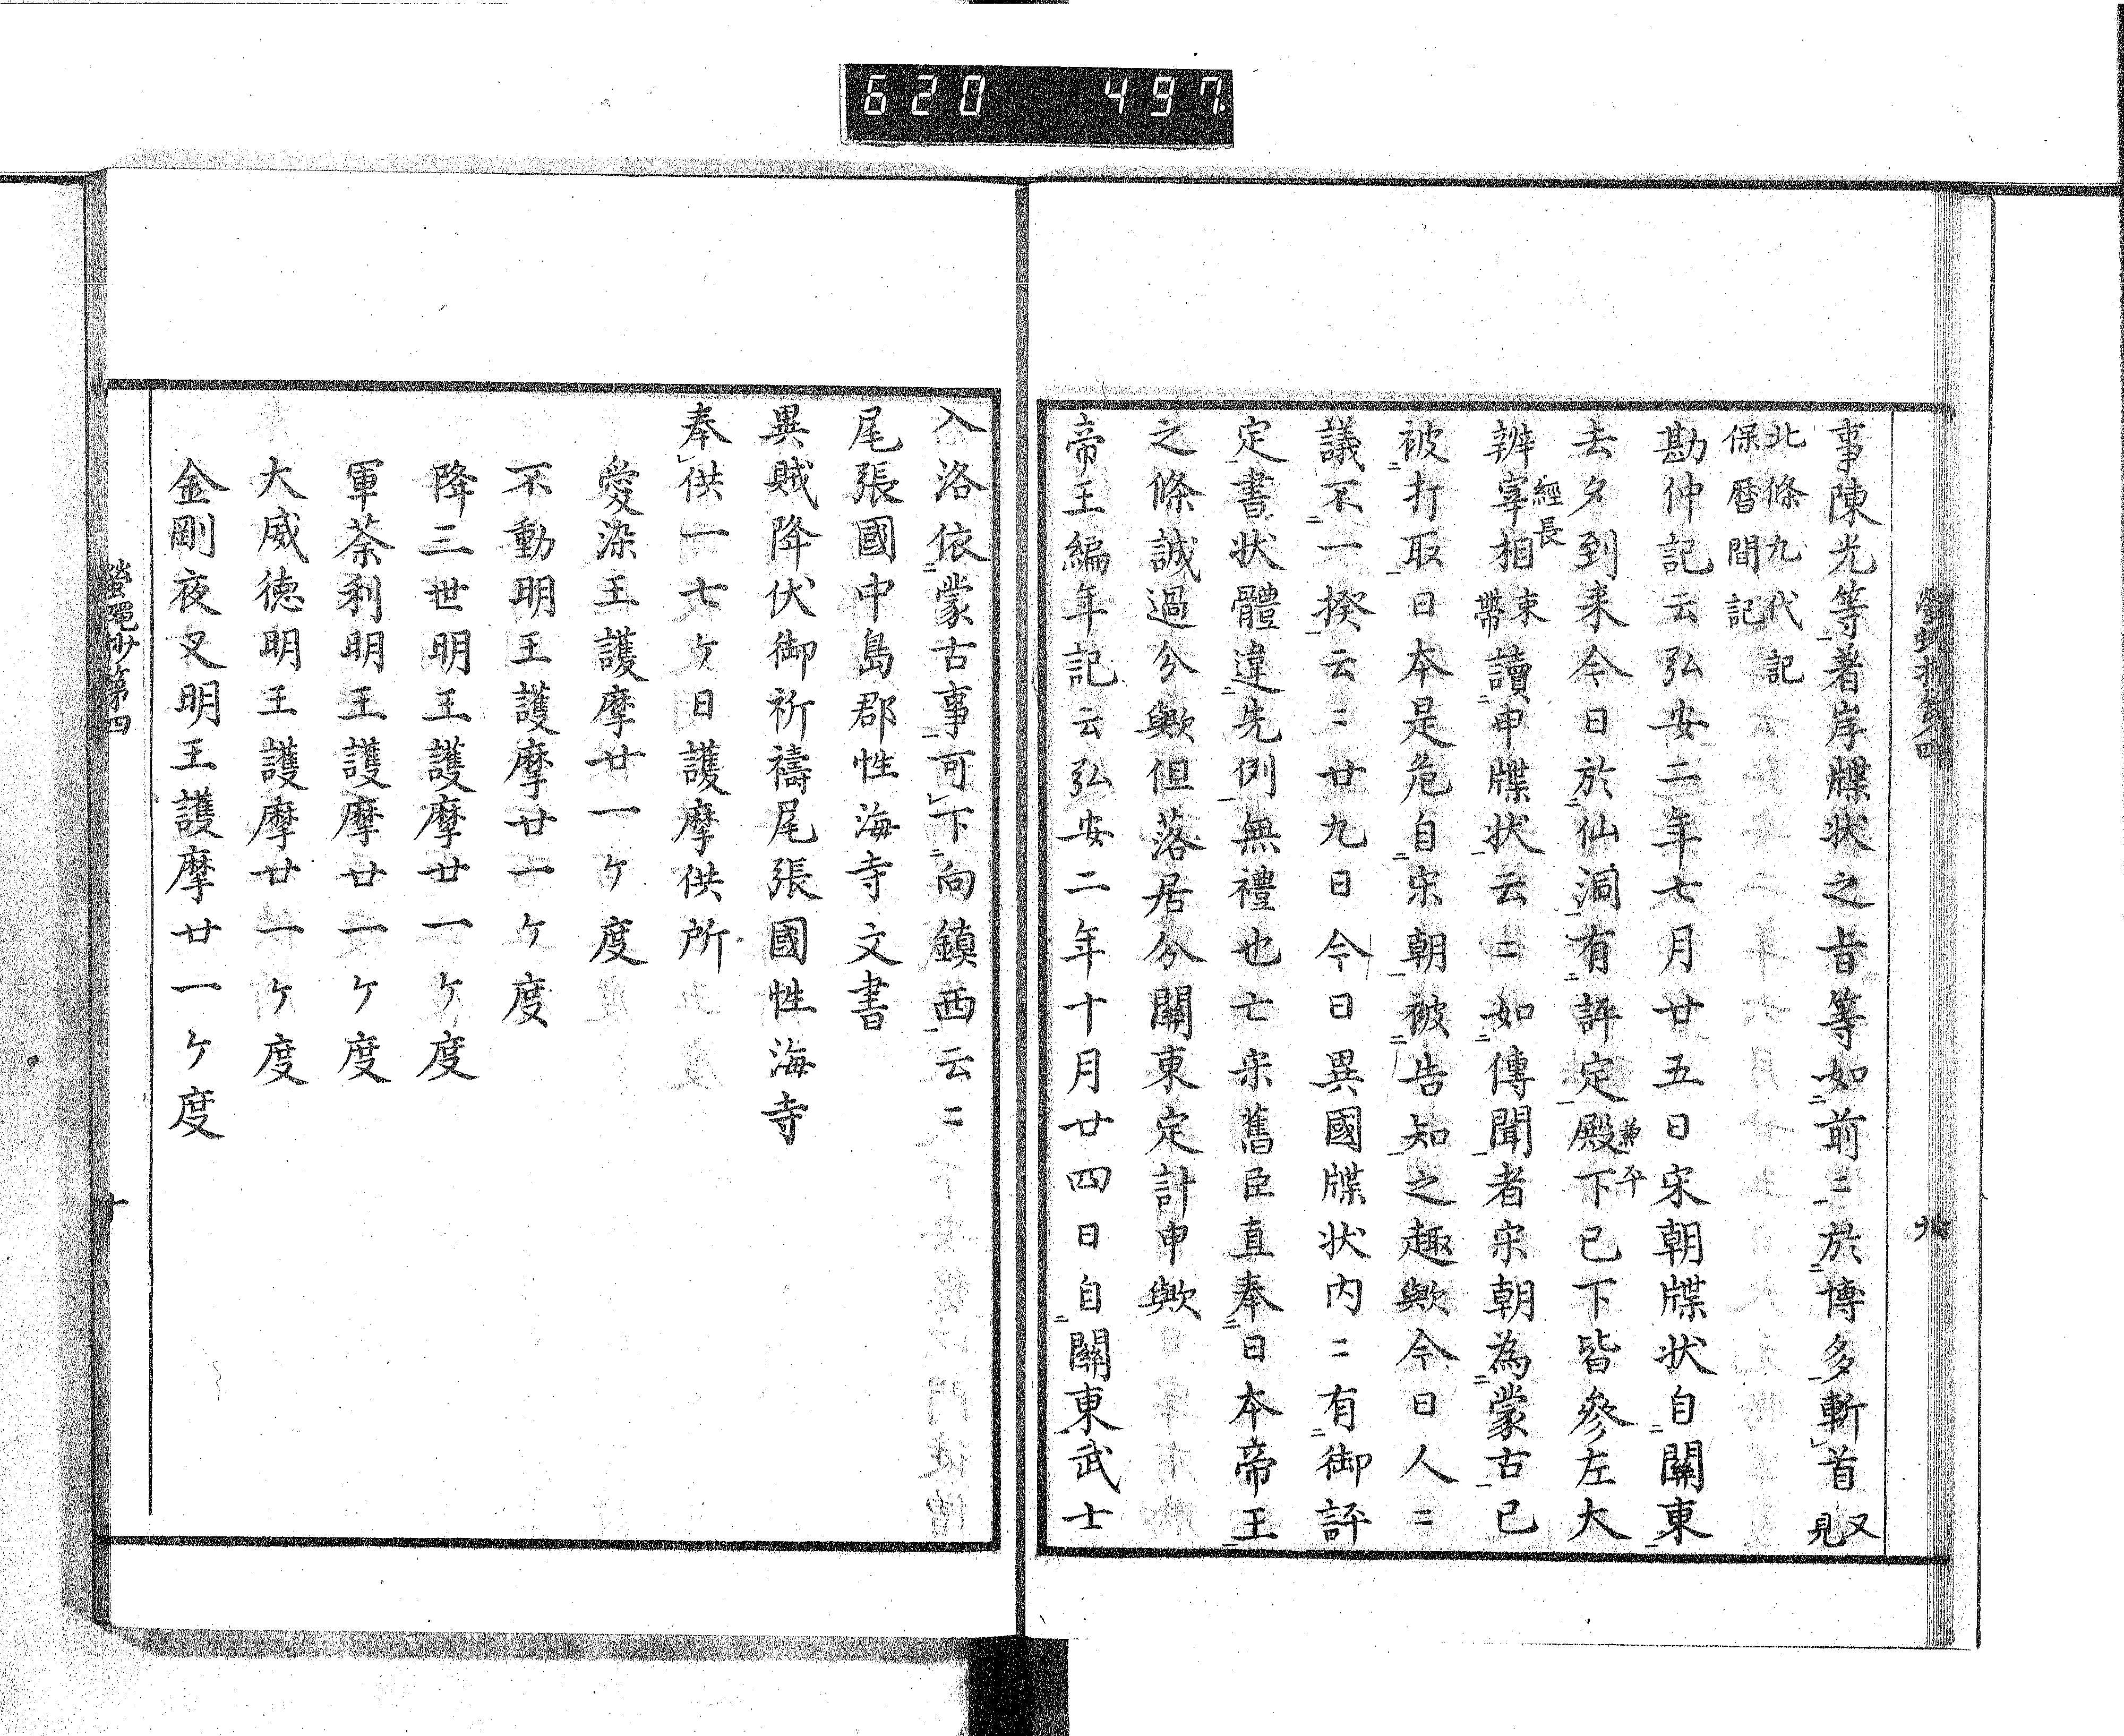 620 497.
事陳光等著岸牒状之旨等如前〻於博多斬首又見
北條九代記
保暦間記
勘仲記云弘安二年七月廿五日宋朝牒状自關東
去夕到来今日於仙洞有評定殿下兼平已下皆參左大
辨宰相經長束帶讀申牒状云〻如傳聞者宋朝為蒙古已
被打取日本是危自宋朝被告知之趣歟今日人〻
議不一揆云〻廿九日今日異國牒状内〻有御評
定書状體違先例無禮也亡宋舊臣直奉日本帝王
之條誠過分歟但落居分關東定計申歟
帝王編年記云弘安二年十月廿四日自關東武士
入洛依蒙古事可下向鎮西云〻
尾張國中島郡性海寺文書
異賊降伏御祈禱尾張國性海寺
奉供一七ケ日護摩供所
愛染王護摩廿一ケ度
不動明王護摩廿一ケ度
降三世明王護摩廿一ケ度
軍荼利明王護摩廿一ケ度
大威徳明王護摩廿一ケ度
金剛夜叉明王護摩廿一ケ度
螢蠅抄第四
十